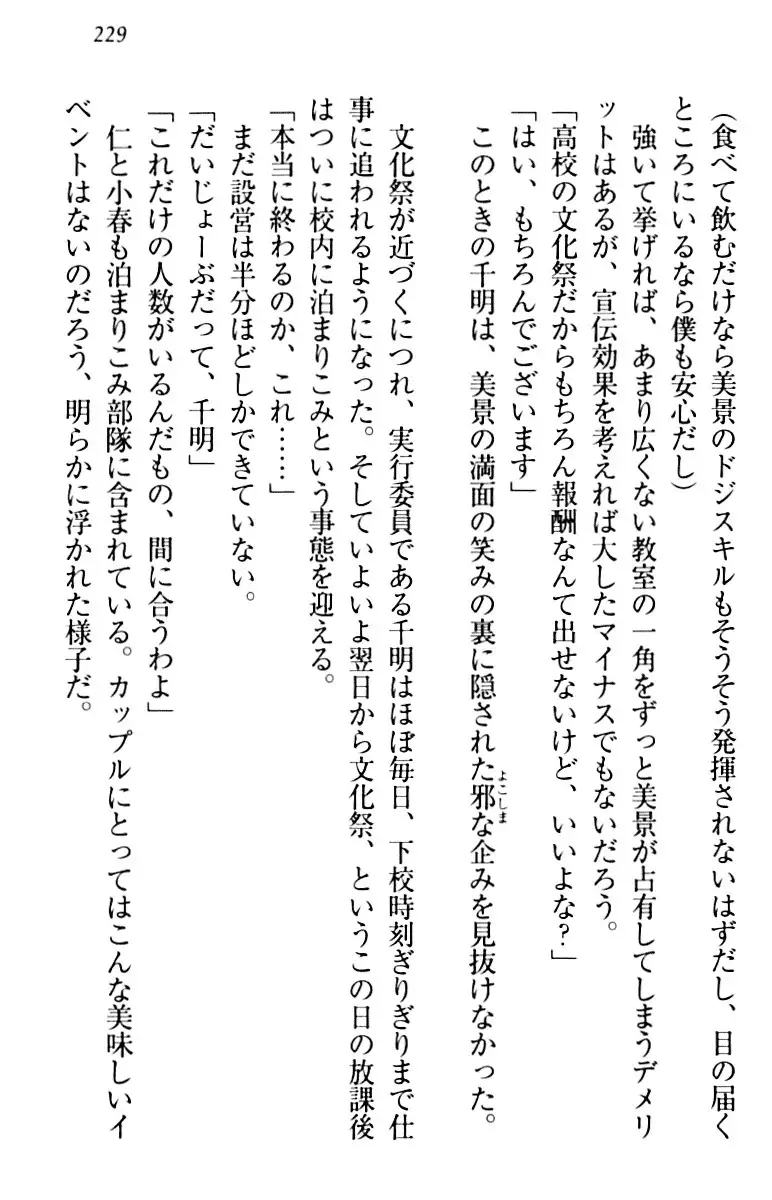 229
（食べて飲むだけなら美景のドジスキルもそうそう発揮されないはずだし、目の届く
ところにいるなら僕も安心だし）
　強いて挙げれば、あまり広くない教室の一角をずっと美景が占有してしまうデメリ
ットはあるが、宣伝効果を考えれば大したマイナスでもないだろう。
「高校の文化祭だからもちろん報酬なんて出せないけど、いいよな？」
「はい、もちろんでございます」
　このときの千明は、美景の満面の笑みの裏に隠された邪な企みを見抜けなかった。
よこしま
　文化祭が近づくにつれ、実行委員である千明はほぼ毎日、下校時刻ぎりぎりまで仕
事に追われるようになった。そしていよいよ翌日から文化祭、というこの日の放課後
はついに校内に泊まりこみという事態を迎える。
「本当に終わるのか、これ……」
　まだ設営は半分ほどしかできていない。
「だいじょーぶだって、千明」
「これだけの人数がいるんだもの、間に合うわよ」
　仁と小春も泊まりこみ部隊に含まれている。カップルにとってはこんな美味しいイ
ベントはないのだろう、明らかに浮かれた様子だ。